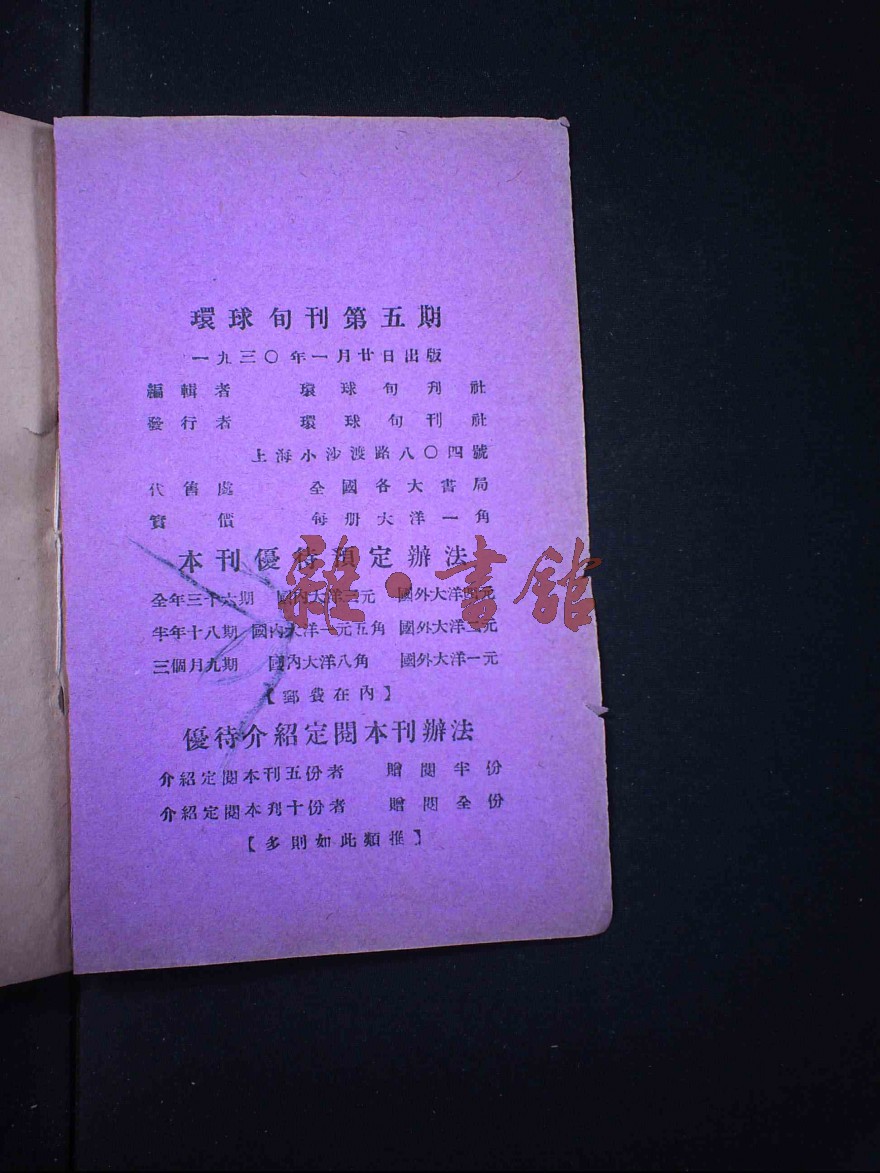 環球旬刊第五期
一九三〇年一月廿日出版
編輯者 環球旬刋社
發行者 環球旬刊社
上海小沙渡路八〇四號
代售處 全國各大書局
實價 每册大洋一角
本刊優待預定辦法
全年三十六期 國內大洋三元 國外大洋四元
半年十八期 國內大洋一元五角 國外大洋二元
三個月九期 國內大洋八角 國外大洋一元
【郵費在內】
優待介紹定閱本刊辦法
介紹定閱本刊五份者 贈閱半份
介紹定閱本刋十份者 贈閱全份
【多則如此類推】
雜·書館